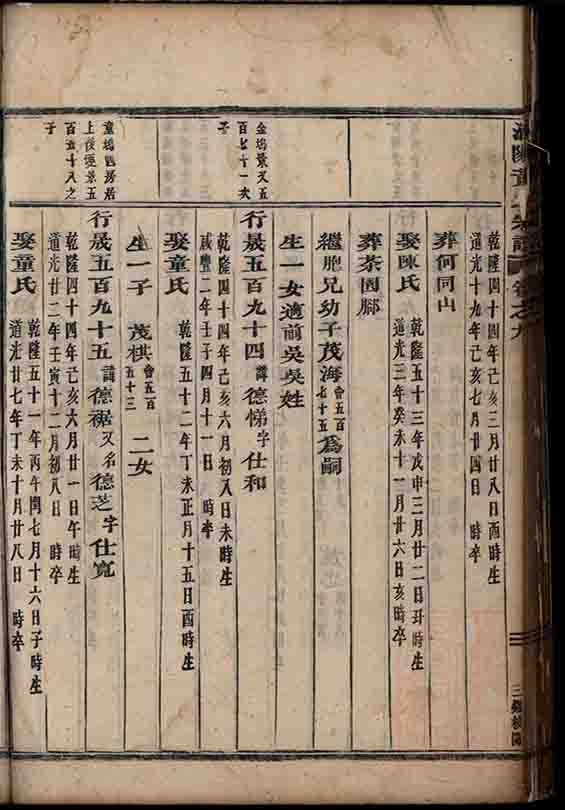 卷之九
乾隆四十四年己亥三月廿八日酉時生
道光十九年己亥七月廿四日　時卒
葬何同山
娶陳氏
乾隆五十三年戊申三月廿二日丑時生
道光三年癸未十一月廿六日亥時卒
葬茶園腳
繼胞兄幼子茂海會五百七十五為嗣
生一女適前吳吳姓
金塢景又五
百七十一次
子
行晟五百九十四諱德悌字仕和
乾隆四十四年己亥六月初八日未時生
咸豐二年壬子四月十一日　時卒
娶童氏
乾隆五十二年丁未正月十五日酉時生
生一子　茂棋會五百五十三　二女
童塢
上後
百五十八之
子
行晟五百九十五諱德裾又名德芝字仕寬
乾隆四十四年己亥六月廿一日午時生
道光廿二年壬寅十二月初八日　時卒
娶童氏
乾隆五十一年丙午閏七月十六日子時生
道光廿七年丁未十月廿八日　時卒